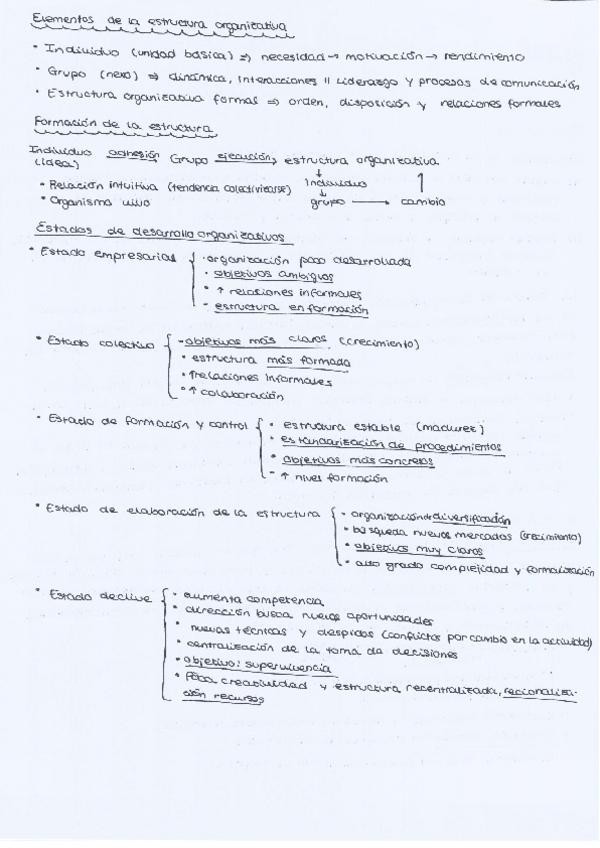 Elementos de la estructura organizativa
• Individuo (unidad básica) => necesidad → motivación → rendimiento
• Grupo (nexo) => dinámica, interacciones || liderazgo y procesos de comunicación
• Estructura organizativa formal => orden, disposición y relaciones formales
Formación de la estructura
Individuo adhesión Grupo ejecución, estructura organizativa
(idea)
• Relación intuitiva (tendencia colectivizarse) Individuo
• Organismo vivo grupo → cambio
Estados de desarrollo organizativos
• Estado empresarial { · organización poco desarrollada
· objetivos ambiguos
• ↑ relaciones informales
- estructura en formación
• Estado colectivo { - objetivos más claros (crecimiento)
• estructura más formada
• ↑relaciones informales
• ↑ colaboración
• Estado de formación y control { • estructura estable (madurez)
• estandarización de procedimientos
• objetivos más concretos
- ↑ nivel formación
• Estado de elaboración de la estructura { • organización diversificación
• búsqueda nuevos mercados (crecimiento)
• objetivos muy claros
• alto grado complejidad y formalización
• Estado declive { • aumenta competencia
• dirección busca nuevas oportunidades
• nuevas técnicas y despidos (conflictos por cambio en la actividad)
• centralización de la toma da decisiones
• objetivo: supervivencia
• Poca creatividad y estructura recentralizada, racionaliza-
ción recursos